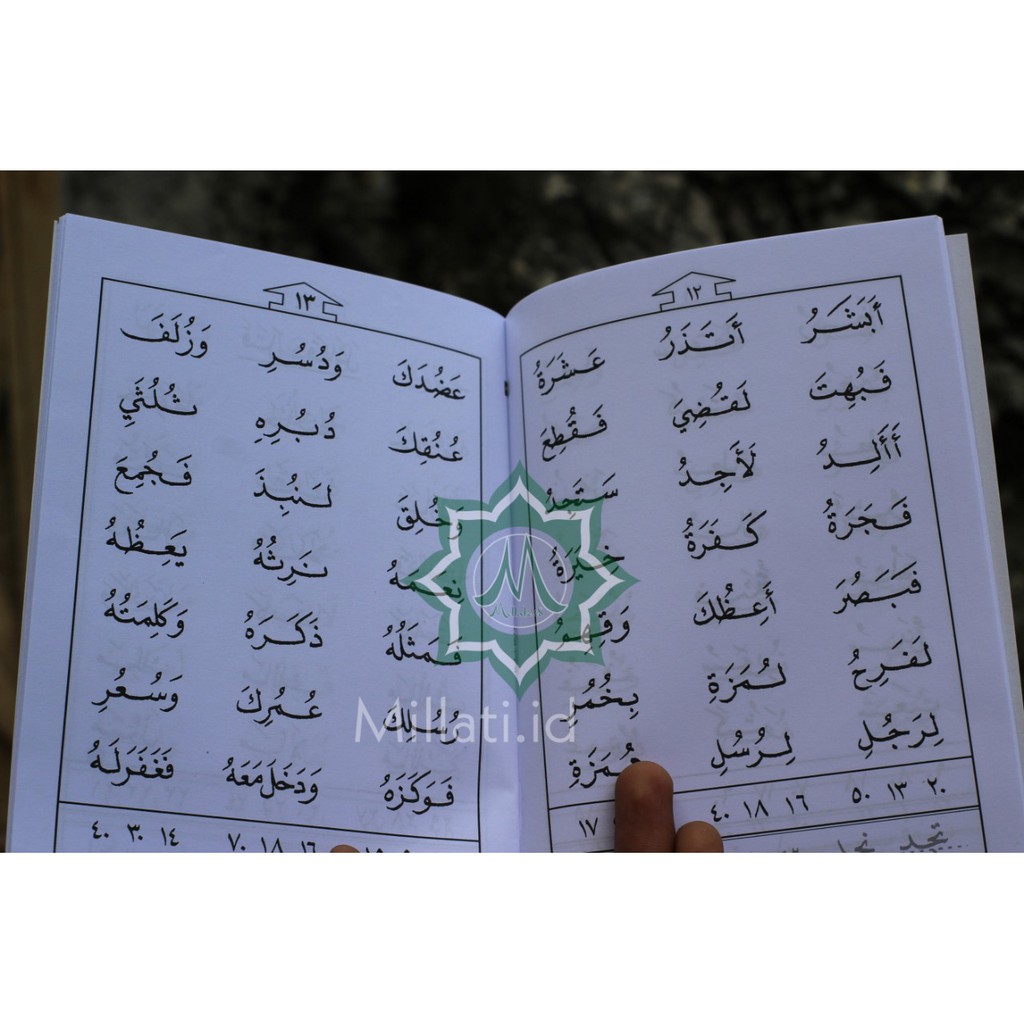 ١٢
أَبَشَرُ أَتَذَرُ عَشَرَةُ
فَبُهِتَ لَقُضِيَ فَقُطِعَ
أَأَلِدُ لَأَجِدُ سَتَجِدُ
فَجَرَةُ كَفَرَةُ خِيَرَةُ
فَبَصُرَ أَعِظُكَ وَقِهِمُ
لَفَرِحُ لُمَزَةِ بِخُمُرِ
لِرَجُلِ لِرُسُلِ هُمَزَةِ
٢٠ ١٣ ٥٠ ١٦ ١٨ ٤٠ ١٧
تجد نجد
١٣
عَضُدَكَ وَدُسُرِ وَزُلَفَ
عُنُقِكَ دُبُرِهِ ثُلُثَيِ
وَخُلِقَ لَنُبِذَ فَجُمِعَ
نَرِثُهُ يَعِظُهُ
فَمَثَلُهُ ذَكَرَهُ وَكَلِمَتُهُ
رُسُلِكَ عُمُرِكَ وَسُعُرِ
فَوَكَزَهُ وَدَخَلَ مَعَهُ فَغَفَرَلَهُ
١٦ ١٨ ٧٠ ١٤ ٣٠ ٤٠
Millati.id